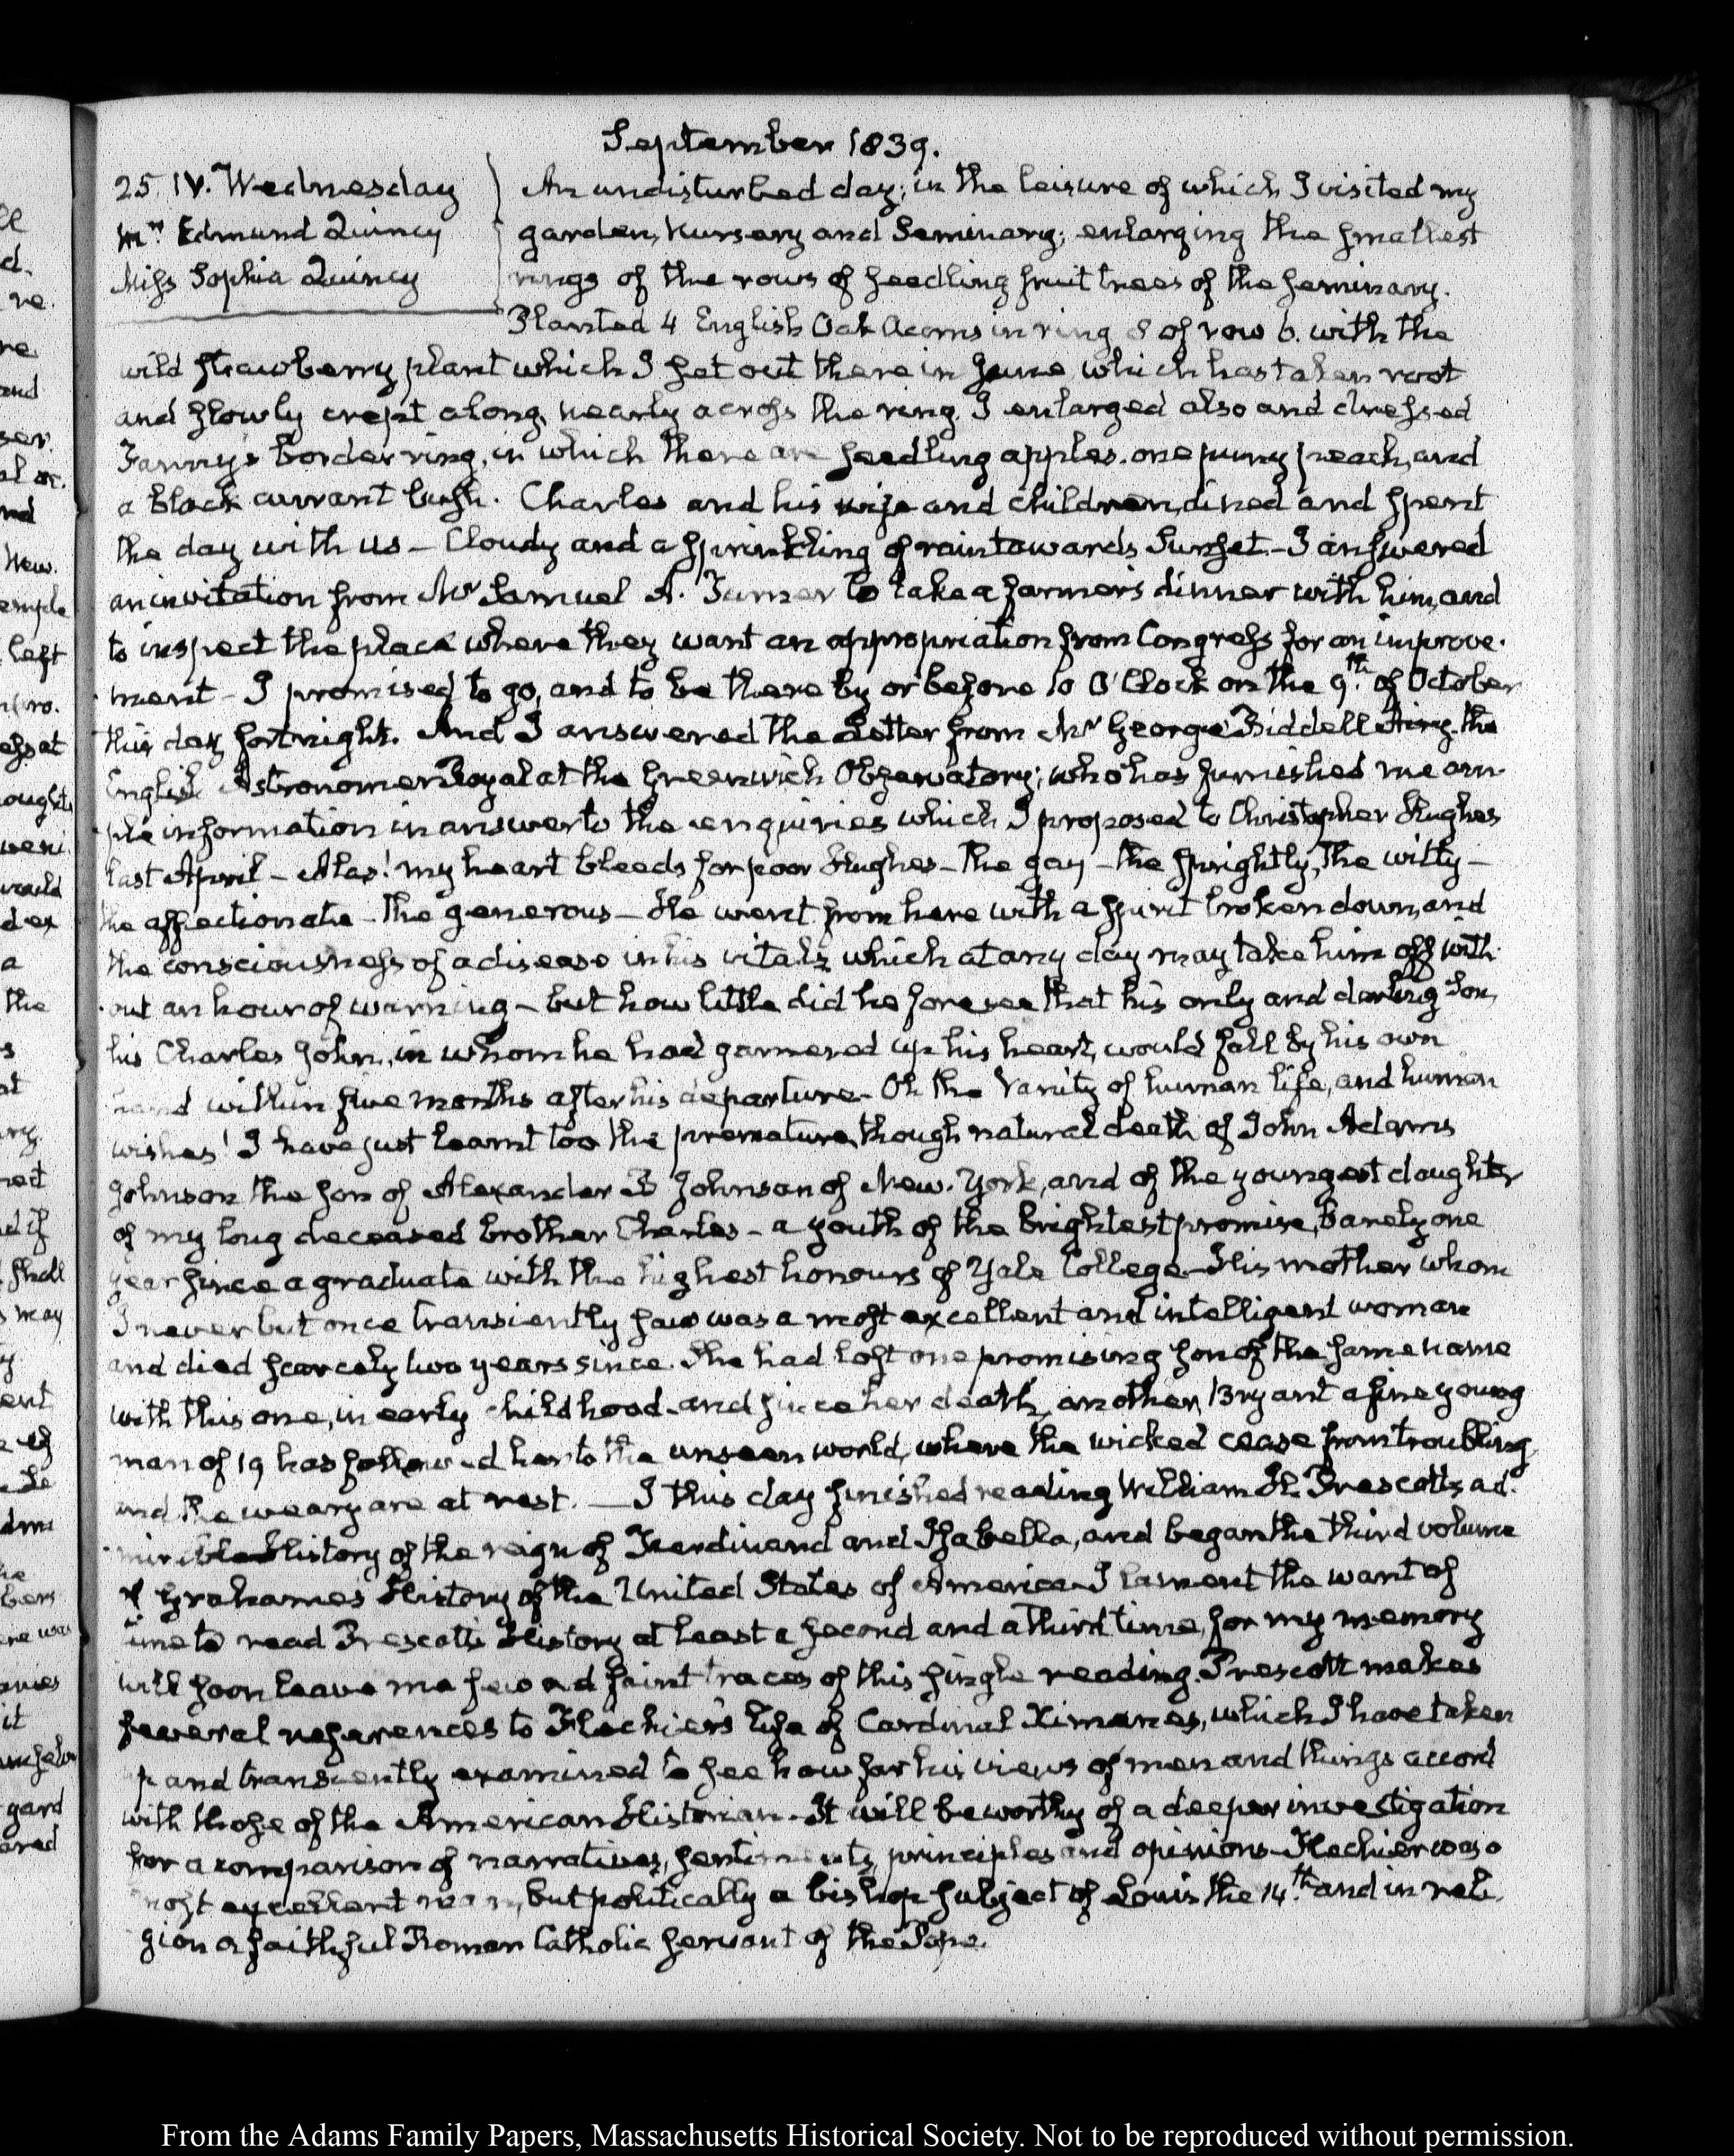 September 1839.
25. IV. Wednesday
Mrs Edmund Quincy
Miss Sophia Quincy
An undisturbed day; in the leisure of which I visited my
garden, Nursery and Seminary; enlarging the smallest
rings of the rows of seedling fruit trees of the seminary.
Planted 4 English Oak Acorns in ring 8 of row 6. with the
wild strawberry plant which I set out there in June, which has taken root
and slowly crept along, nearly across the ring. I enlarged also and dressed
Fanny's border ring, in which there are seedling apples, one puny peach, and
a black currant bush. Charles and his wife and children, dined and spent
the day with us — Cloudy and a sprinkling of rain towards Sunset — I answered
an invitation from Mr Samuel A. Turner to take a farmer's dinner with him, and
to inspect the place where they want an appropriation from Congress for an improve-
ment — I promised to go, and to be there by or before 10 O'Clock on the 9th of October
this day fortnight. And I answered the Letter from Mr George Biddell Airy, the
English Astronomer Royal at the Greenwich Observatory; who has furnished me am-
ple information in answer to the enquiries which I proposed to Christopher Hughes
last April — Alas! my heart bleeds for poor Hughes — The gay — the sprightly, the witty —
the affectionate — the generous — He went from here with a spirit broken down, and
the consciousness of a disease in his vitals which at any day may take him off with-
out an hour of warning — but how little did he foresee that his only and darling Son,
his Charles John, in whom he had garnered up his heart, would fall by his own
hand within five months after his departure. Oh the Vanity of human life, and human
wishes! I have just learnt too the premature, though natural death of John Adams
Johnson the son of Alexander B Johnson of New-York, and of the youngest daughter
of my long deceased brother Charles — a youth of the brightest promise, barely one
year since a graduate with the highest honours of Yale College — His mother whom
I never but once transiently saw was a most excellent and intelligent woman
and died scarcely two years since. She had lost one promising son of the same name
with this one, in early childhood — and since her death, another, Bryant a fine young
man of 19 has followed her to the unseen world, where the wicked cease from troubling
and the weary are at rest. — I this day finished reading William H. Prescott's ad-
mirable History of the reign of Ferdinand and Isabella, and began the third volume
of Grahame's History of the United States of America — I lament the want of
time to read Prescott's History at least a second and a third time, for my memory
will soon leave me few and faint traces of this single reading. Prescott makes
several references to Flechier's life of Cardinal Ximenes, which I have taken
up and transiently examined to see how far his views of men and things accord
with those of the American Historian — It will be worthy of a deeper investigation
for a comparison of narratives, sentiments, principles and opinions — Flechier was a
most excellent man, but politically a bishop subject of Louis the 14th and in reli-
gion a faithful Roman Catholic servant of the Pope.
From the Adams Family Papers, Massachusetts Historical Society. Not to be reproduced without permission.